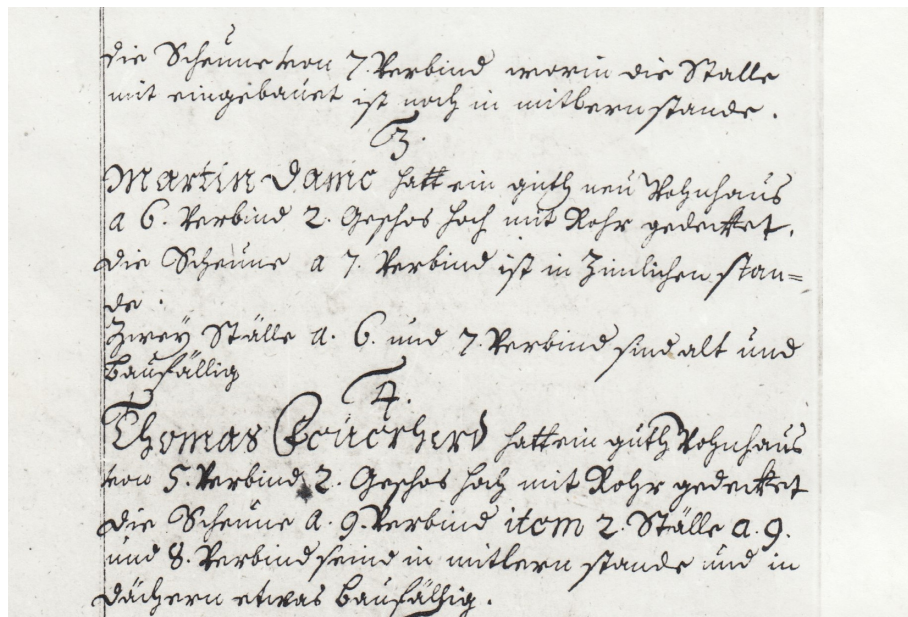 die Scheune von 7. Verbind worin die Stalle
mit eingebauet ist noch in mitlern stande.
3.
Martin Damc hatt ein guth neu Wohnhaus
a 6. Verbind 2. Geschos hoch mit Rohr gedecket.
die Scheune a 7. Verbind ist in Zimlichen stan=
de.
Zwey Ställe a. 6. und 7. Verbind sind alt und
baufällig
4.
Thomas hatt ein guth Wohnhaus
von 5. Verbind 2. Geschos hoch mit Rohr gedecket
die Scheune a. 9. Verbind item 2. Ställe a. 9.
und 8. Verbind seind in mitlern stande und in
dächern etwas baufällig.